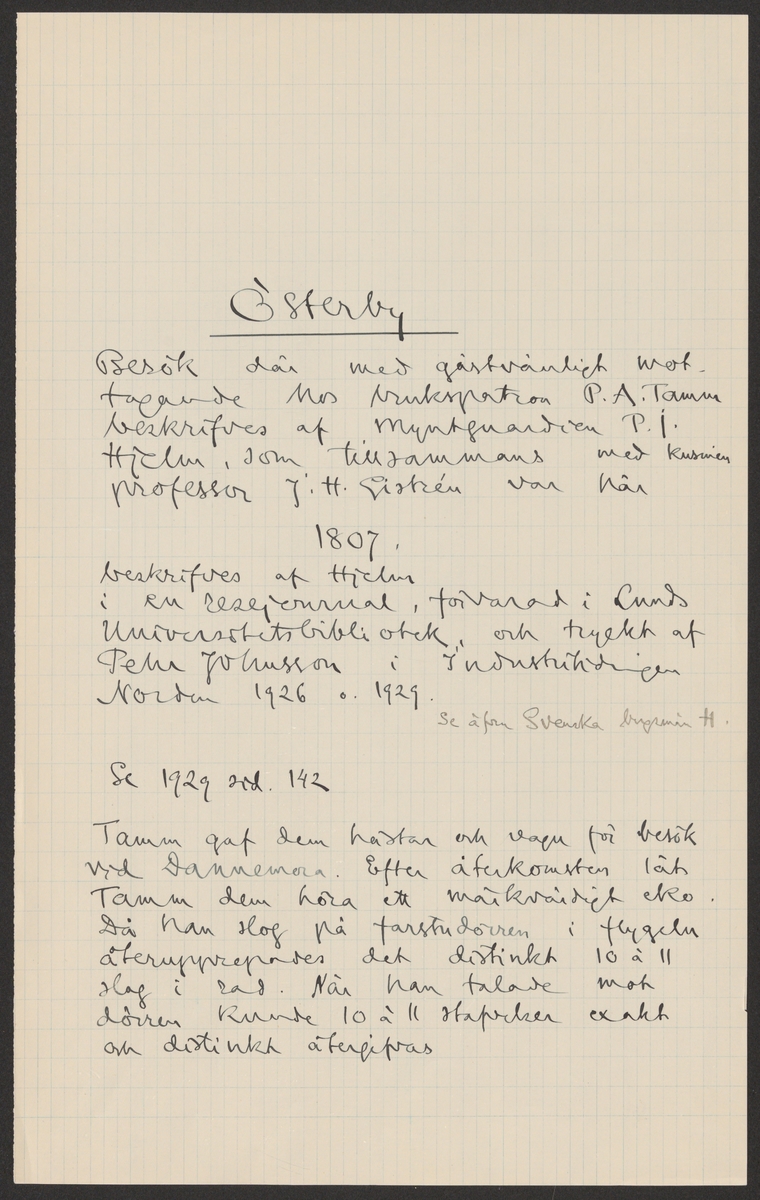 Österby
Besök där med gästvänligt mot-
tagande hos brukspatron P. A. Tamm
beskrifves af Myntguardien P. J.
Hjelm, som tillsammans med kusinen
professor J. H. Gistrén var här
1807,
beskrifves af Hjelm
i en resejournal, förvarad i Lunds
Universitetsbibliotek, och tryckt af
Pehr Johnsson i Industritidningen
Norden 1926 o. 1929.
Se äfven Svenska H.
Se 1929 sid. 142
Tamm gaf dem hästar och vagn för besök
vid Dannemora. Efter återkomsten lät
Tamm dem höra ett märkvärdigt eko.
Då han slog på farstudörren i flygeln
återupprepades det distinkt 10 à 11
slag i rad. När han talade mot
dörren kunde 10 à 11 stafvelser exakt
och distinkt återgifvas